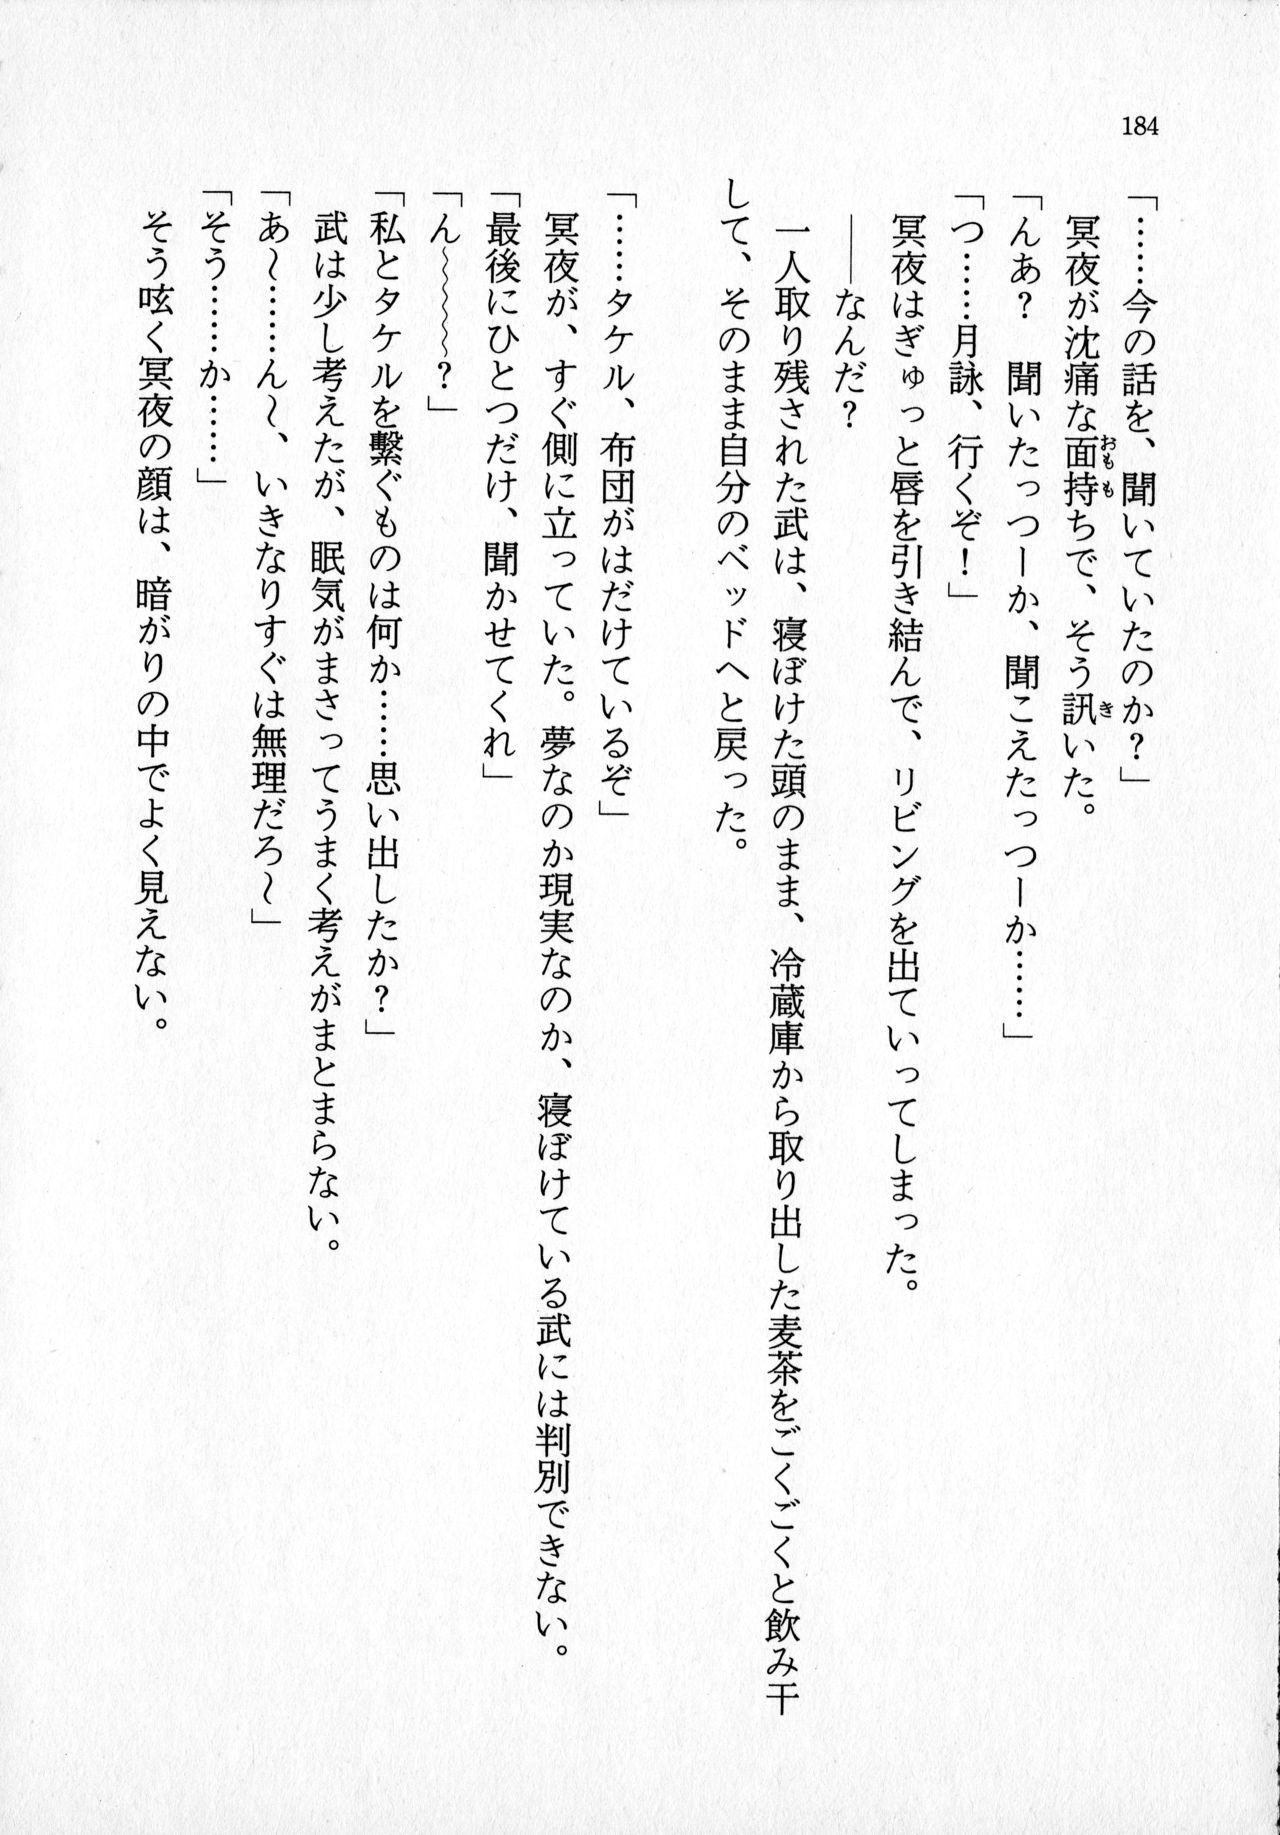 184
「……今の話を、聞いていたのか？」
冥夜が沈痛な面持ちで、そう訊いた。
「んぁ？　聞いたっつーか、聞こえたっつーか……」
「つ……月詠、行くぞ！」
冥夜はぎゅっと唇を引き結んで、リビングを出ていってしまった。
――なんだ？
一人取り残された武は、寝ぼけた頭のまま、冷蔵庫から取り出した麦茶をごくごくと飲み干
して、そのまま自分のベッドへと戻った。
「……タケル、布団がはだけているぞ」
冥夜が、すぐ側に立っていた。夢なのか現実なのか、寝ぼけている武には判別できない。
「最後にひとつだけ、聞かせてくれ」
「ん～～～～？」
「私とタケルを繋ぐものは何か……思い出したか？」
武は少し考えたが、眠気がまさってうまく考えがまとまらない。
「あ～……ん～、いきなりすぐは無理だろ～」
「そう……か……」
そう呟く冥夜の顔は、暗がりの中でよく見えない。